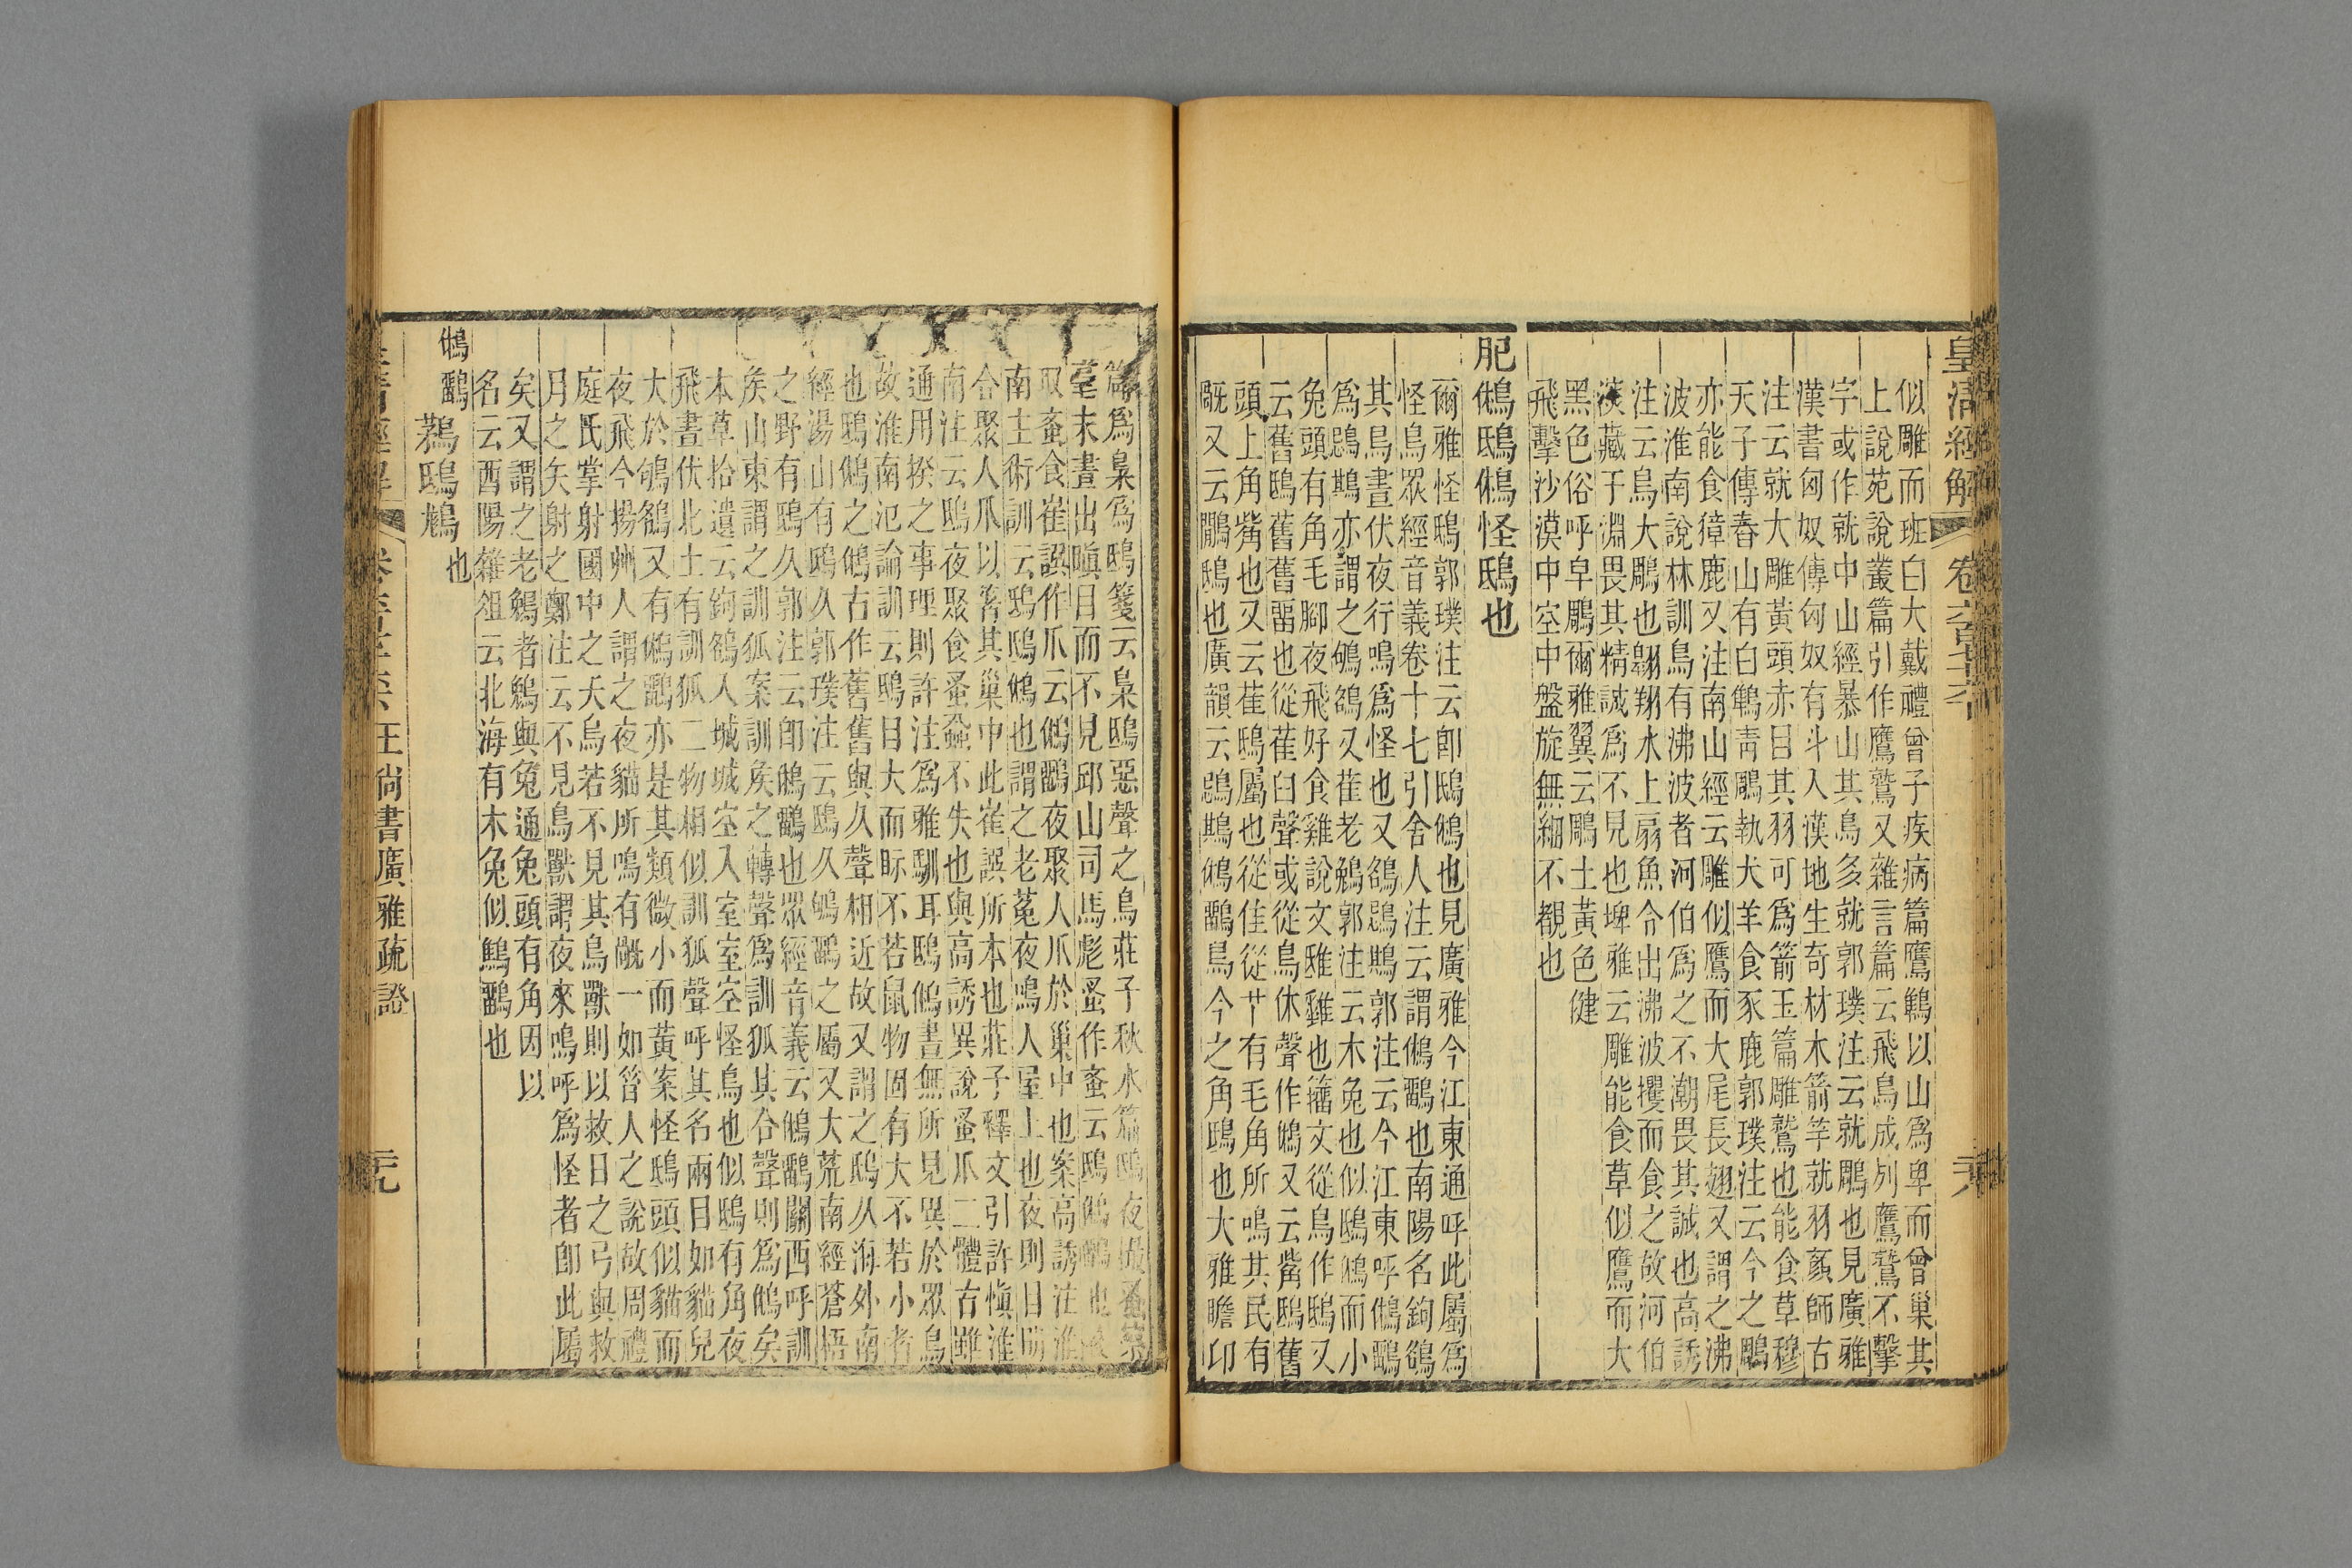 皇清經解
似雕而班白大戴禮曾子疾病篇鷹鶽以山爲卑而曾巢其
上說苑說叢篇引作鷹鷲又雜言篇云飛鳥成列鷹鷲不擊
字或作就中山經暴山其鳥多就郭璞注云就鵰也見廣雅
漢書匈奴傳匈奴有斗入漢地生奇材木箭竿就羽顏師古
注云就大雕黃頭赤目其羽可爲箭玉篇雕鷲也能食草穆
天子傳舂山有白鶽靑鵰執犬羊食豕鹿郭璞注云今之鵰
亦能食獐鹿又注南山經云雕似鷹而大尾長翅又謂之沸
波淮南說林訓鳥有沸波者河伯爲之不潮畏其誠也高誘
注云鳥大鵰也翱翔水上扇魚令出沸波攫而食之故河伯
藏于淵畏其精誠爲不見也埤雅云雕能食草似鷹而大
黑色俗呼皁鵰爾雅翼云鵰土黃色健
飛擊沙漠中空中盤旋無細不覩也
肥鵂鴟鵂怪鴟也
爾雅怪鴟郭璞注云卽鴟鵂也見廣雅今江東通呼此屬爲
怪鳥眾經音義卷十七引舍人注云謂鵂鶹也南陽名鉤鵅
其鳥晝伏夜行鳴爲怪也又鵅鶀郭注云今江東呼鵂鶹
爲鶀亦謂之鵅又萑老鵵郭注云木兔也似鴟鵂而小
兔頭有角毛腳夜飛好食雞說文雖也籒文從鳥作鴟又
云舊鴟舊舊畱也從萑臼聲或從鳥休聲作鵂又云觜鴟舊
頭上角觜也又云萑鴟屬也從隹從有毛角所鳴其民有
旤又云鴟也廣韻云鶀鵂鶹鳥今之角鴟也大雅瞻卬
篇爲梟爲鴟箋云梟鴟惡聲之鳥莊子秋水篇鴟夜撮蚤察
毫末晝出瞋目而不見邱山司馬彪蚤作蚤云鴟鵂鶹也
取蚤食崔誤作爪云鵂鶹夜聚人爪於巢中也案高誘注淮
南主術訓云鴟鴟鵂也謂之老菟夜鳴人屋上也夜則目明
合聚人爪以著其巢中此崔誤所本也莊子釋文引許愼淮
南注云鴟夜聚食蚤蝨不失也與高誘異說蚤爪二體古雖
通用揆之事理則許注爲雅馴耳鴟鵂晝無所見異於眾鳥
故淮南氾論訓云鴟目大而眎不若鼠物固有大不若小者
也鴟鵂之鵂古作舊舊與久聲相近故又謂之鴟久海外南
經湯山有鴟久郭璞注云鴟久鴝鶹之屬又大荒南經蒼梧
之野有鴟久郭注云卽鵂鶹也眾經音義云鵂鶹關西呼訓
矦山東謂之訓狐案訓矦之轉聲爲訓狐其合聲則爲鵂矣
本草拾遺云鉤鵅入城城空入室室空怪鳥也似鴟有角夜
飛晝伏北土有訓狐二物相似訓狐聲呼其名兩目如貓兒
大於鴝鵒又有鵂鶹亦是其類微小而黃案怪鴟頭似貓而
夜飛今揚州人謂之夜貓所鳴有旤一如笤人之說故周禮
庭氏掌射國中之夭鳥若不見其鳥獸則以救日之弓與救
月之矢射之鄭注云不見鳥獸謂夜來鳴呼爲怪者卽此屬
矣又謂之老鵵者鵵與兔通兔頭有角因以
名云酉陽雜俎云北海有木兔似鶹也
鵂鶹鴟也
王尙書廣雅疏證